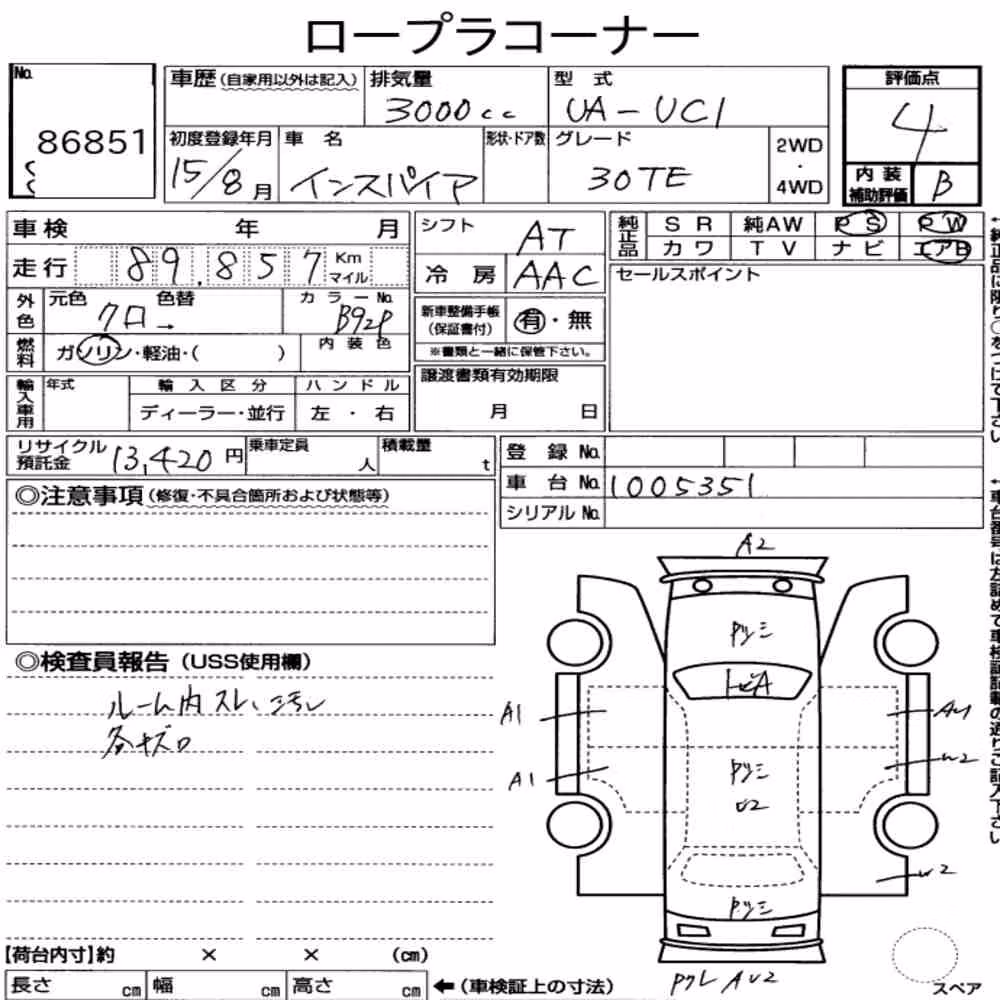 ロープラコーナー
No. 86851
車歴 (自家用以外は記入)
排気量 3000cc
型式 UA-UC1
初度登録年月 15/8月
車名 インスパイア
形状・ドア数
グレード 30TE
2WD・4WD
評価点 4
内装補助評価 B
車検 年 月
走行 89,857 Km マイル
外色 元色 クロ→ 色替
カラーNo. B92P
燃料 ガソリン・軽油・( )
内装色
輸入車用 年式
輸入区分 ディーラー・並行
ハンドル 左・右
シフト AT
冷房 AAC
新車整備手帳(保証書付) 有・無
※書類と一緒に保管下さい。
譲渡書類有効期限
月 日
純正品 SR 純AW PS PW
カワ TV ナビ エアB
セールスポイント
←純正品に限り○をつけて下さい
リサイクル預託金 13,420円
乗車定員 人
積載量 t
登録No.
車台No. 1005351
シリアルNo.
←車台番号は左詰めで車検証記載の通りご記入下さい
◎注意事項 (修復・不具合箇所および状態等)
◎検査員報告 (USS使用欄)
ルーム内スレ、汚レ
各キズロ
A2
A1
A1
U2
W2
AU2
スペア
【荷台内寸】約 × × (cm)
長さ cm 幅 cm 高さ cm ←(車検証上の寸法)